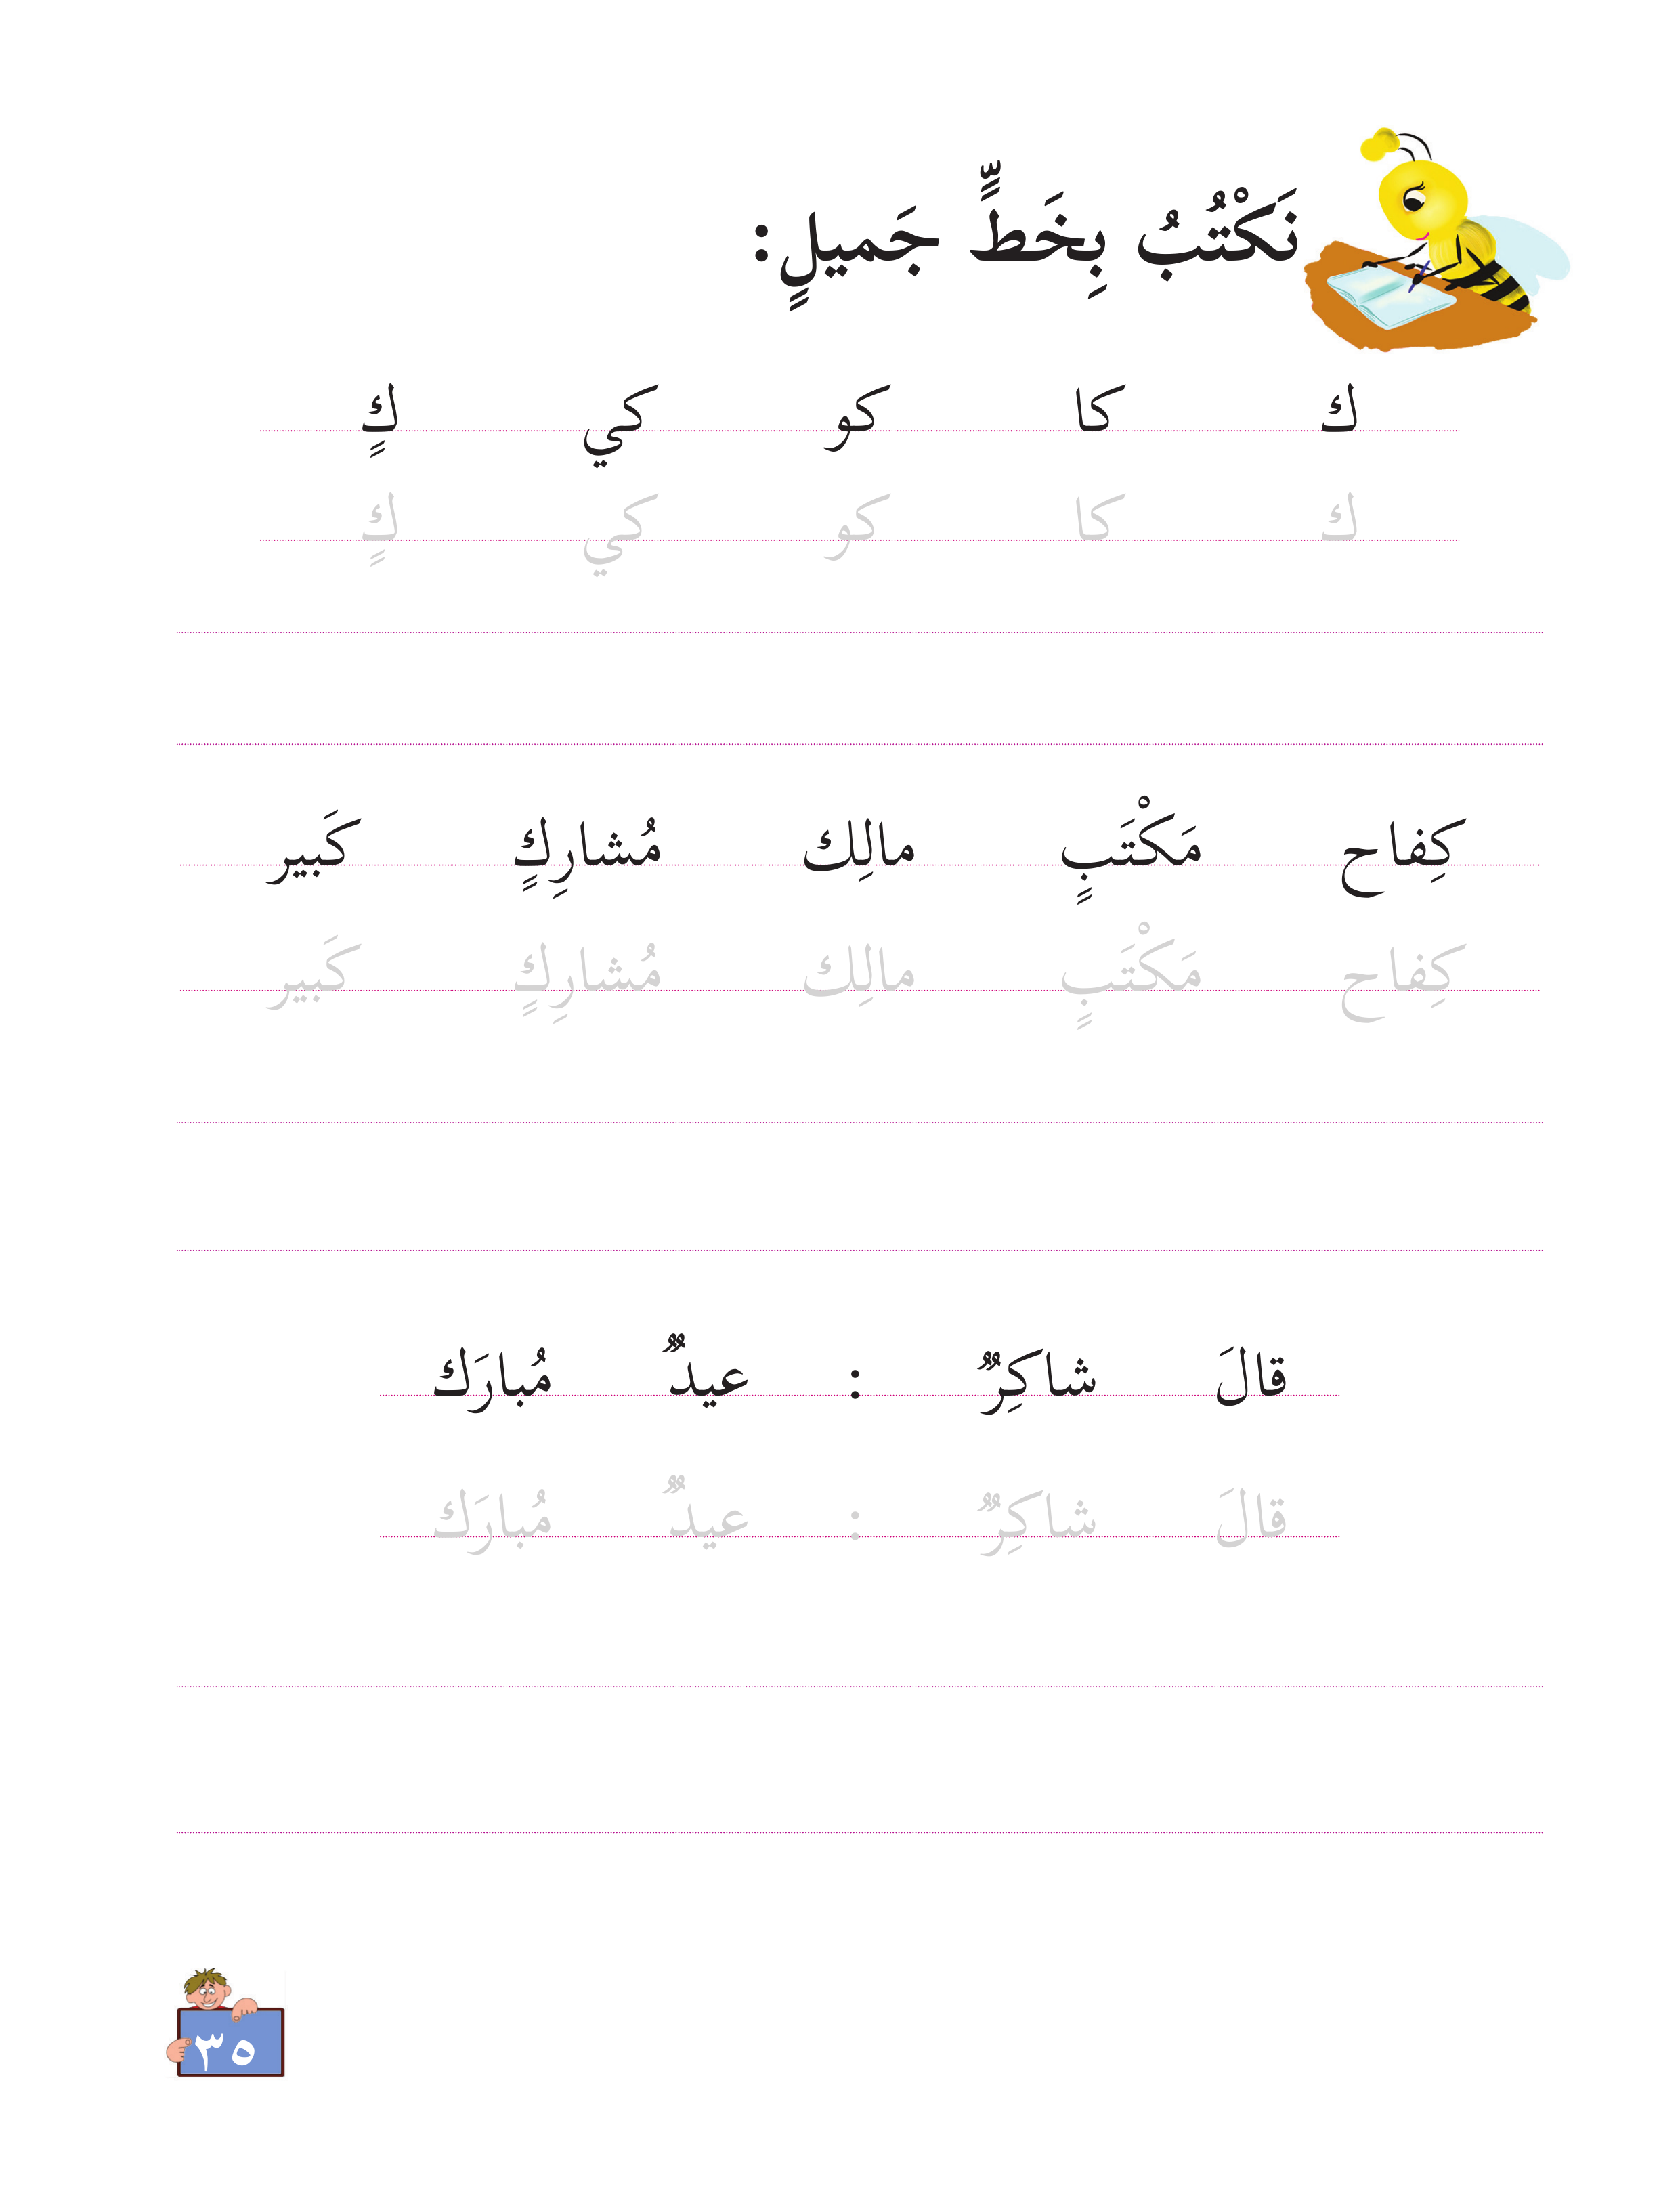 نَكْتُبُ بِخَطٍّ جَميلٍ:
ك كا كو كي كٍ
ك كا كو كي كٍ
كِفاح مَكْتَبٍ مالِك مُشارِكٍ كَبير
كِفاح مَكْتَبٍ مالِك مُشارِكٍ كَبير
قالَ شاكِرٌ : عيدٌ مُبارَك
قالَ شاكِرٌ : عيدٌ مُبارَك
٣٥